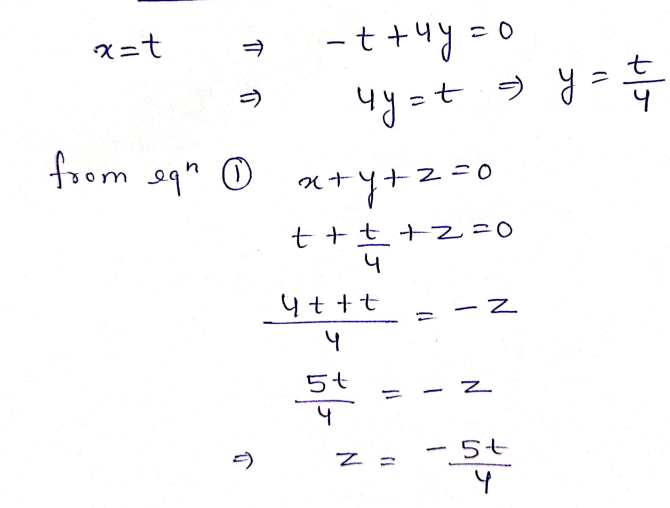 x=t ⇒ -t+4y=0
⇒ 4y=t ⇒ y=t/4
from eqⁿ ① x+y+z=0
t+t/4+z=0
(4t+t)/4=-z
5t/4=-z
⇒ z=-5t/4